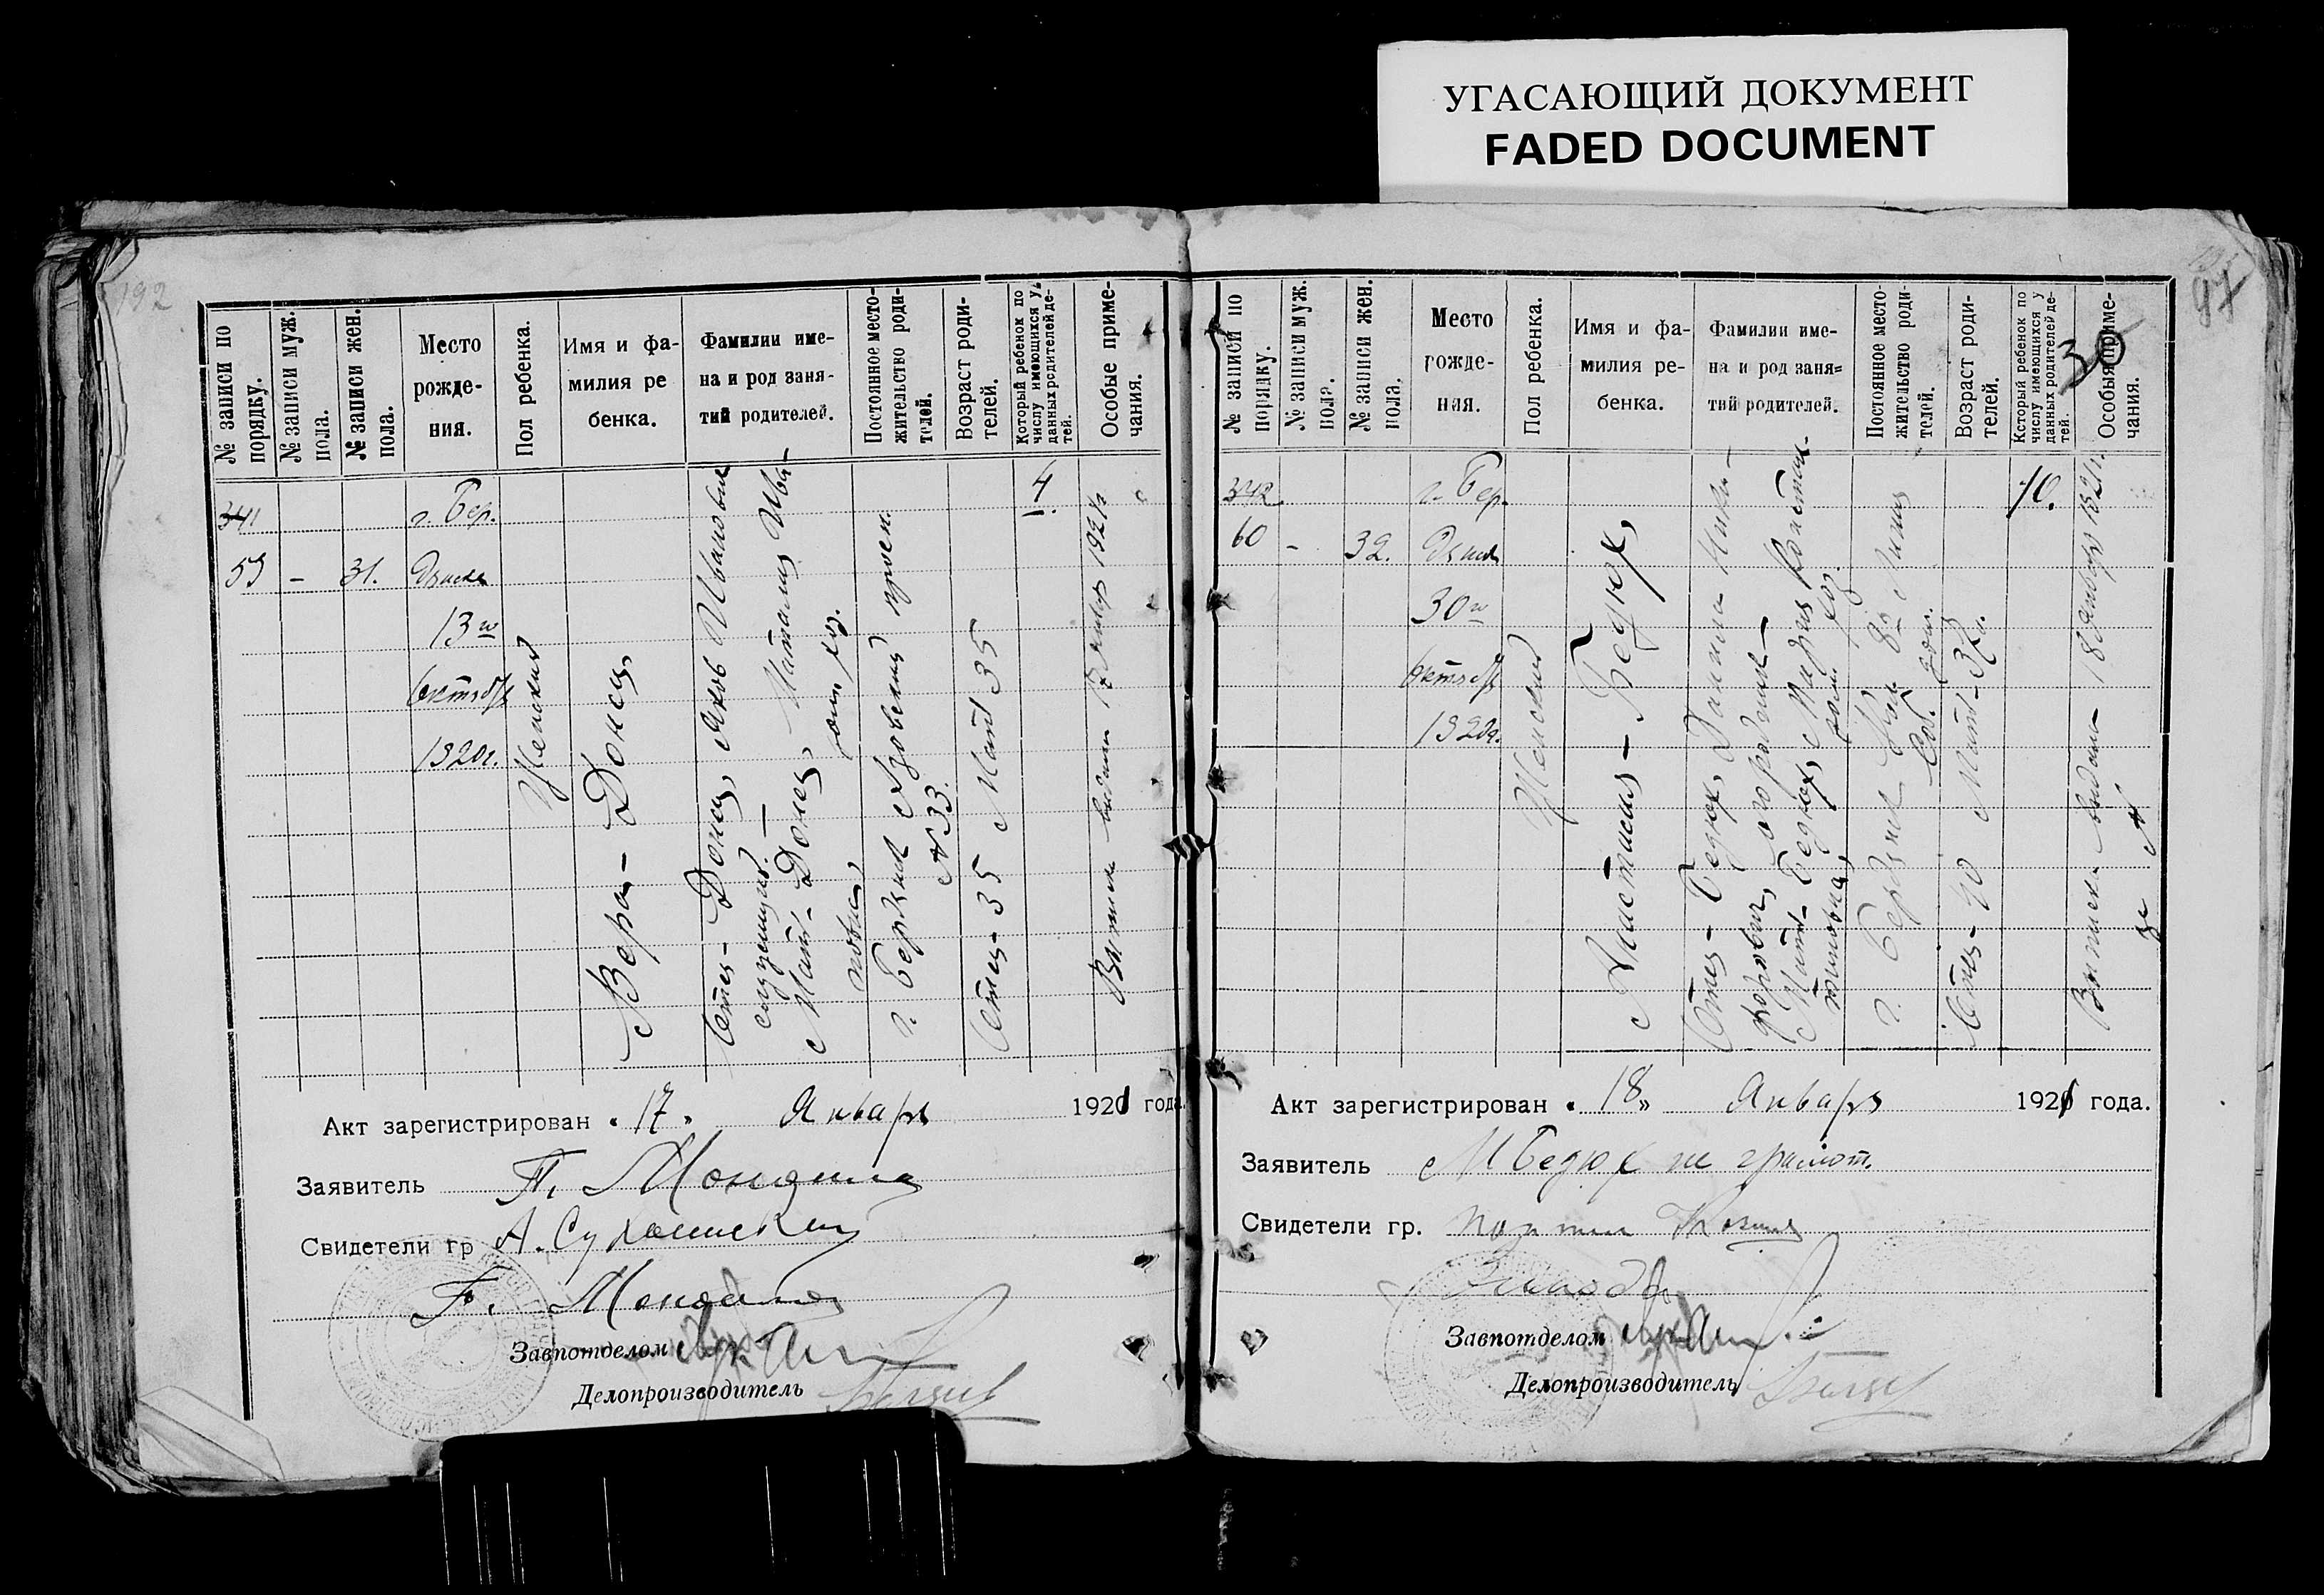 УГАСАЮЩИЙ ДОКУМЕНТ
FADED DOCUMENT
192
№ записи по порядку.
№ записи муж. пола.
№ записи жен. пола.
Место рожде-
ния.
Пол ребенка.
Имя и фа-
милия ре
бенка.
Фамилии име-
на и род заня-
тий родителей.
Постоянное место-
жительство роди-
телей.
Возраст роди-
телей.
Который ребенок по
числу имеющихся у
данных родителей де-
тей.
Особые приме-
чания.
341
59 - 31.
г. Бер.
дянск
13го
Октября
1920г.
Женский
Вера - Донец
Отец - Донец, Яков Иванович
служащий. -
Мать - Донец, Наталия Ива-
новна, дом. хоз.
г. Бердянск Азовский просп.
№ 33.
Отец - 35 Мать 35
4
Выписка выдана 17 января 1921г
Акт зарегистрирован „ 17 „ Января 1921 года.
Заявитель
Свидетели гр А.
Завпотделом
Делопроизводитель
97
30
№ записи по
порядку.
№ записи муж.
пола.
№ записи жен.
пола.
Место
рожде-
ния.
Пол ребенка.
Имя и фа-
милия ре-
бенка.
Фамилии име-
на и род заня-
тий родителей.
Постоянное место-
жительство роди-
телей.
Возраст роди-
телей.
Который ребенок по
числу имеющихся у
данных родителей де-
тей.
Особые приме-
чания.
342
60 - 32.
г. Бер.
дянск
30го
Октября
1920г.
Женский
Анастасия - Бедюх,
Отец - Бедюх, Даниил Ники-
форович, огородник -
Мать - Бедюх, Мария Констан-
тиновна, дом. хоз.
г. Бердянск 8я Линия
Соб. дом.
Отец - 40 Мать - 37л.
10.
Выписка выдана 18 января 1921г.
за №
Акт зарегистрирован „ 18 „ Января 1921 года.
Заявитель М Бедюх не грамот.
Свидетели гр.
Завпотделом
Делопроизводитель